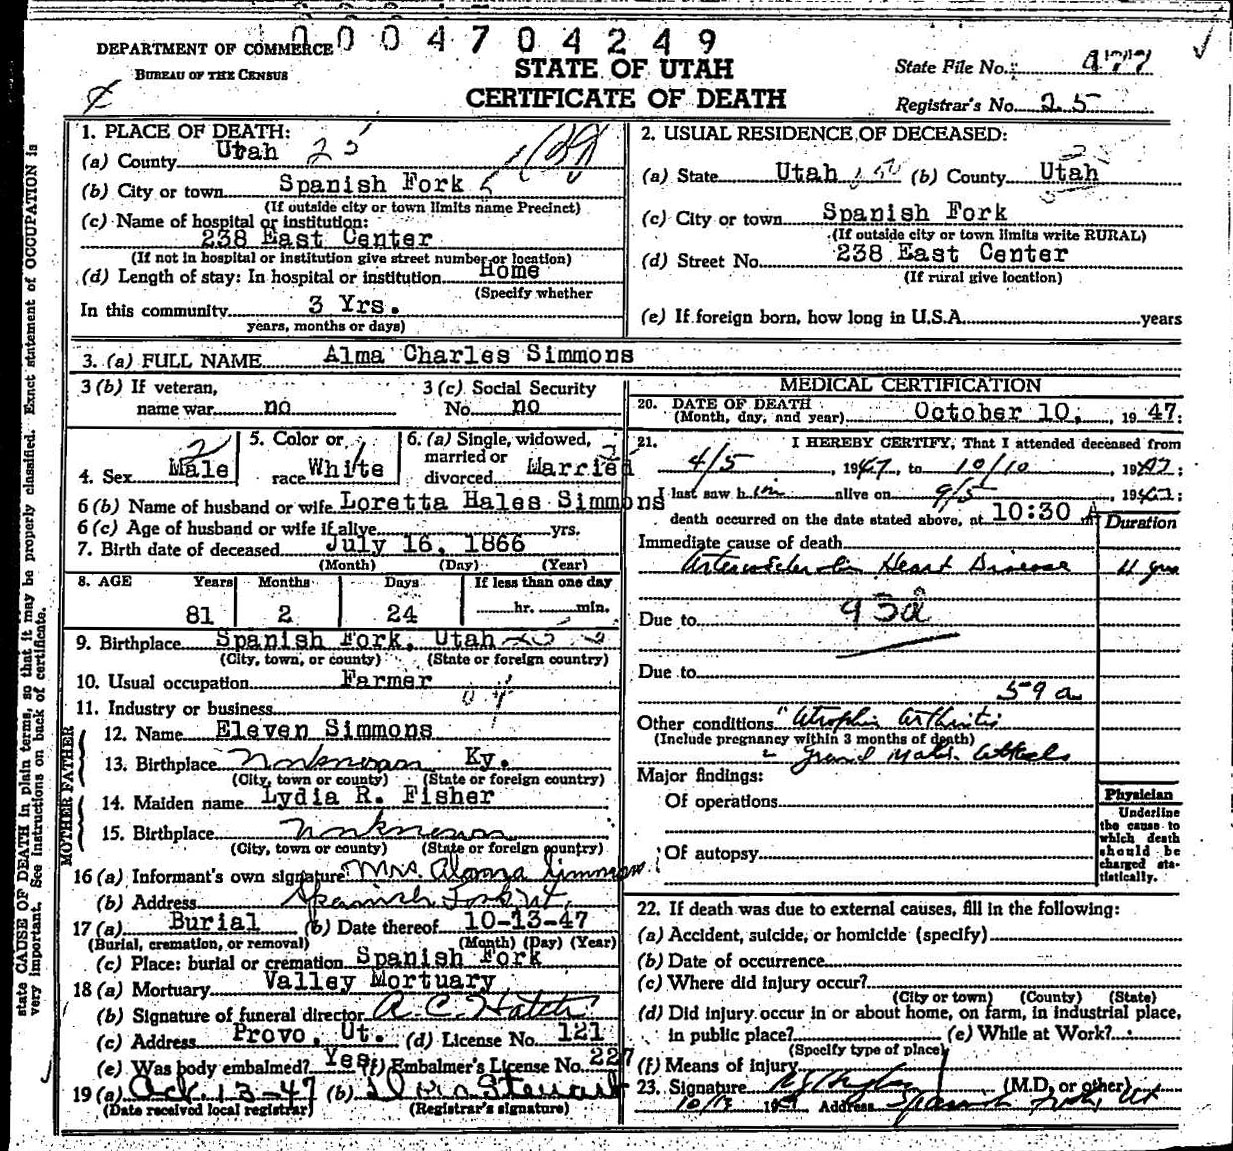 0004704249
DEPARTMENT OF COMMERCE
BUREAU OF THE CENSUS
STATE OF UTAH
CERTIFICATE OF DEATH
State File No. 477
Registrar's No. 25
1. PLACE OF DEATH:
(a) County Utah 25
(b) City or town Spanish Fork
(If outside city or town limits name Precinct)
(c) Name of hospital or institution:
238 East Center
(If not in hospital or institution give street number or location)
(d) Length of stay: In hospital or institution Home
(Specify whether
In this community 3 Yrs.
years, months or days)
2. USUAL RESIDENCE OF DECEASED:
(a) State Utah (b) County Utah
(c) City or town Spanish Fork
(If outside city or town limits write RURAL)
(d) Street No. 238 East Center
(If rural give location)
(e) If foreign born, how long in U.S.A. years
3. (a) FULL NAME Alma Charles Simmons
3 (b) If veteran,
name war no
3 (c) Social Security
No. no
4. Sex Male
5. Color or
race White
6. (a) Single, widowed,
married or
divorced Married
6 (b) Name of husband or wife Loretta Hales Simmons
6 (c) Age of husband or wife if alive yrs.
7. Birth date of deceased July 16, 1866
(Month) (Day) (Year)
8. AGE Years Months Days If less than one day
81 2 24 hr. min.
9. Birthplace Spanish Fork, Utah
(City, town, or county) (State or foreign country)
10. Usual occupation Farmer
11. Industry or business
FATHER
12. Name Eleven Simmons
13. Birthplace Ky.
(City, town or county) (State or foreign country)
MOTHER
14. Maiden name Lydia R. Fisher
15. Birthplace
(City, town or county) (State or foreign country)
16 (a) Informant's own signature Mrs. Alma Simmons
(b) Address Spanish Fork Ut.
17 (a) Burial (b) Date thereof 10-13-47
(Burial, cremation, or removal) (Month) (Day) (Year)
(c) Place: burial or cremation Spanish Fork
18 (a) Mortuary Valley Mortuary
(b) Signature of funeral director A. C. Hatch
(c) Address Provo, Ut. (d) License No. 121
(e) Was body embalmed? Yes (f) Embalmer's License No. 227
19 (a) Oct. 13-47 (b)
(Date received local registrar) (Registrar's signature)
MEDICAL CERTIFICATION
20. DATE OF DEATH
(Month, day, and year) October 10, 1947:
21. I HEREBY CERTIFY, That I attended deceased from
4/5, 1947, to 10/10, 1947;
I last saw him alive on 9/5, 1947;
death occurred on the date stated above, at 10:30 A
Duration
Immediate cause of death
Arteriosclerotic Heart Disease
Due to 93d
Due to
59a
Other conditions Atrophic Arthritis
(Include pregnancy within 3 months of death)
Major findings:
Of operations
Of autopsy
Physician
Underline
the cause to
which death
should be
charged sta-
tistically.
22. If death was due to external causes, fill in the following:
(a) Accident, suicide, or homicide (specify)
(b) Date of occurrence
(c) Where did injury occur?
(City or town) (County) (State)
(d) Did injury occur in or about home, on farm, in industrial place,
in public place? (e) While at Work?
(Specify type of place)
(f) Means of injury
23. Signature (M.D. or other)
10/13 1947 Address Spanish Fork, Ut
state CAUSE OF DEATH in plain terms, so that it may be properly classified. Exact statement of OCCUPATION is
very important. See instructions on back of certificate.